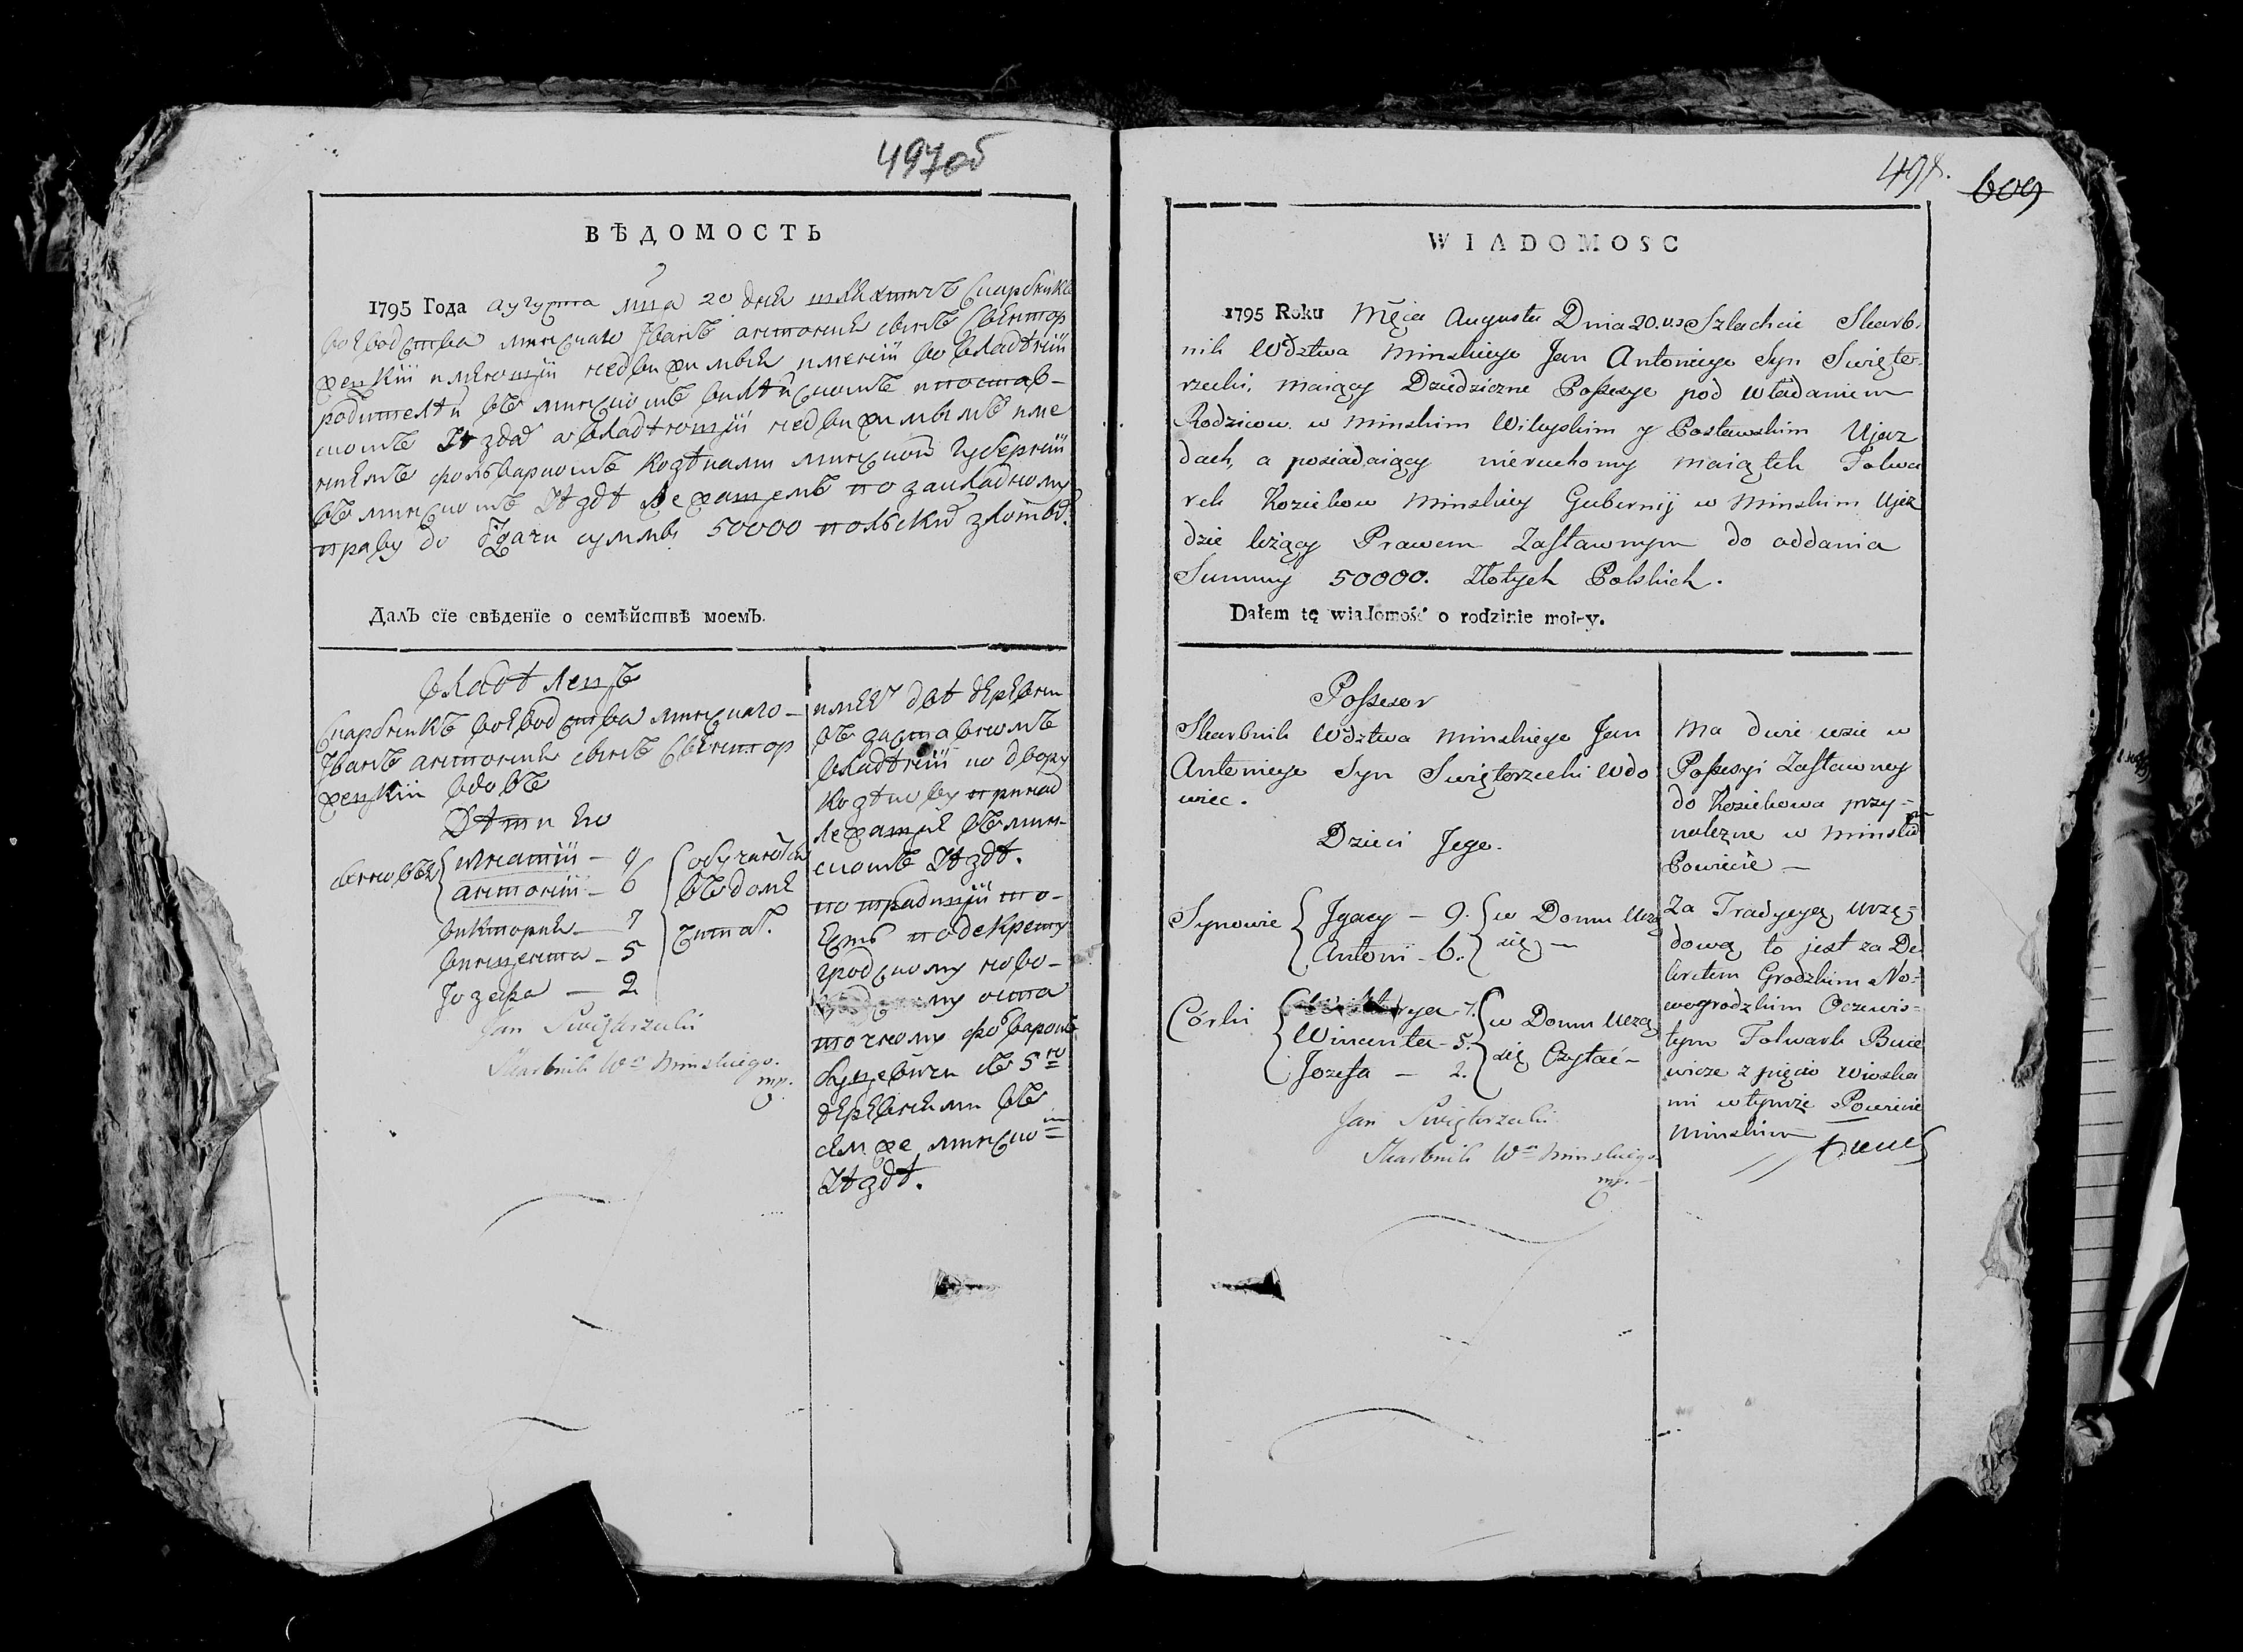 497об
ВѢДОМОСТЬ
1795 Года августа мца 20 дня шляхтичъ скарбникъ
воеводства минскаго Іванъ антония сынъ Свентор
жецкіи имѣющіи недвижимыя имения во владѣніи
родителѣй въ минскомъ вилѣйскомъ и постав-
скомъ Уѣздах а владѣющіи недвижимымъ име
ниемъ фольваркомъ Козѣками минской губерніи
въ минскомъ Уѣздѣ лежащемъ по закладному
праву до Здачи суммы 50000 польских злотых.
ДалЪ сїе свѣденїе о семѣйствѣ моемЪ.
владѣлецъ
скарбникъ воеводства минскаго
Іванъ антония сынъ Свентор
жецкіи вдовъ
Дѣти Ево
сыновья игнатіи - 9 обучаются
антоніи - 6 въ доме
виктория - 7 читат.
винцента - 5
Іозефа - 2
Jan Swiętorzecki
Skarbnik Wa Minskiego.
mp.
имеет двѣ деревни
въ заставномъ
владѣніи ко двору
Козѣкову принад
лежащие въ мин-
скомъ Уѣздѣ.
по традиціи то-
есть по декрету
гродскому ново-
очевис
точному фолваркъ
буцевичи съ 5ю
деревнями въ
семъ же минско
Уѣздѣ.
498. 609
WIADOMOSC
1795 Roku Mca Augusta Dnia 20. v.s Szlachcic Skarb-
nik Wdztwa Minskiego Jan Antoniego Syn Swięto-
rzecki, maiący Dziedziczne Possesye pod władaniem
Rodzicow w Minskim Wileyskim y Postawskim Ujez
dach, a posiadaiący nieruchomy maiątek Folwa
rek Kozickow Minskiey Gubernij w Minskim Ujez
dzie leżący Prawem Zastawnym do oddania
Summy 50000. Złotych Polskich.
Dałem tę wiadomość o rodzinie moiey.
Possesor
Skarbnik Wdztwa Minskiego Jan
Antoniego Syn Swiętorzecki Wdo
wiec.
Dzieci Jego.
Synowie Jgacy - 9. w Domu Ucza
Antoni - 6. się -
Córki Wiktorya - 7. w Domu Uczą
Wincenta - 5. się Czytać -
Jozefa - 2.
Jan Swiętorzecki
Skarbnik Wa Minskiego
mp.
Ma dwie wsie w
Possesyi Zastawney
do Kozickowa przy-
należne w Minskim
Powiecie -
Za Tradycyą urzę-
dową to jest za De
kretem Grodzkim No-
wogrodzkim Oczewis-
tym Folwark Buce
wicze z pięcio wioska
mi w tymże Powiecie
Minskim